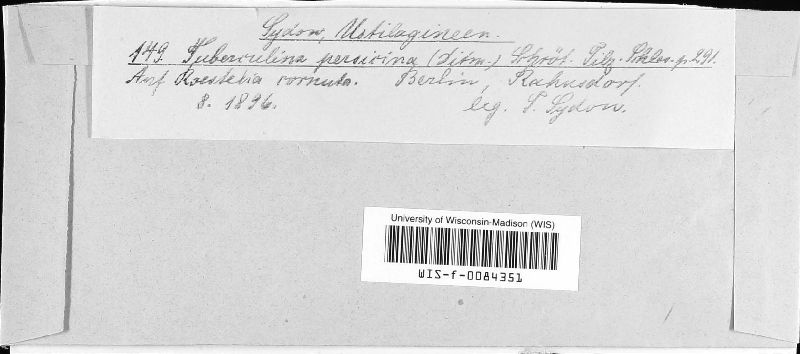 Sydow, Ustilagineen.
149. Tuberculina persicina (Ditm.) Schröt. Pilz. Schles. p. 291.
Auf Roestelia cornuta. Berlin, Rahnsdorf.
8. 1896. leg. P. Sydow.
University of Wisconsin-Madison (WIS)
WIS-f-0084351